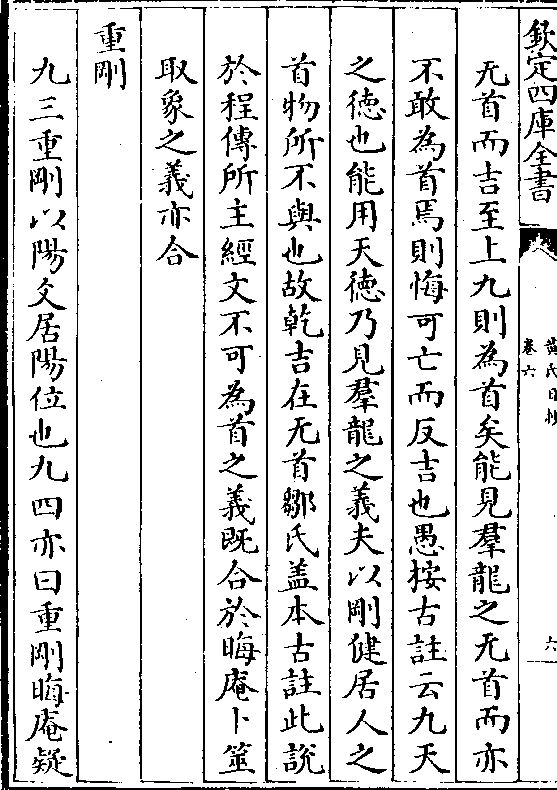 欽定四庫全書
黃氏日抄
卷六
六
无首而吉至上九則為首矣能見羣龍之无首而亦
不敢為首焉則悔可亡而反吉也愚按古註云九天
之德也能用天德乃見羣龍之義夫以剛健居人之
首物所不與也故乾吉在无首鄒氏盖本古註此説
於程傳所主經文不可為首之義既合於晦庵卜筮
取象之義亦合
重剛
九三重剛以陽爻居陽位也九四亦曰重剛晦庵疑